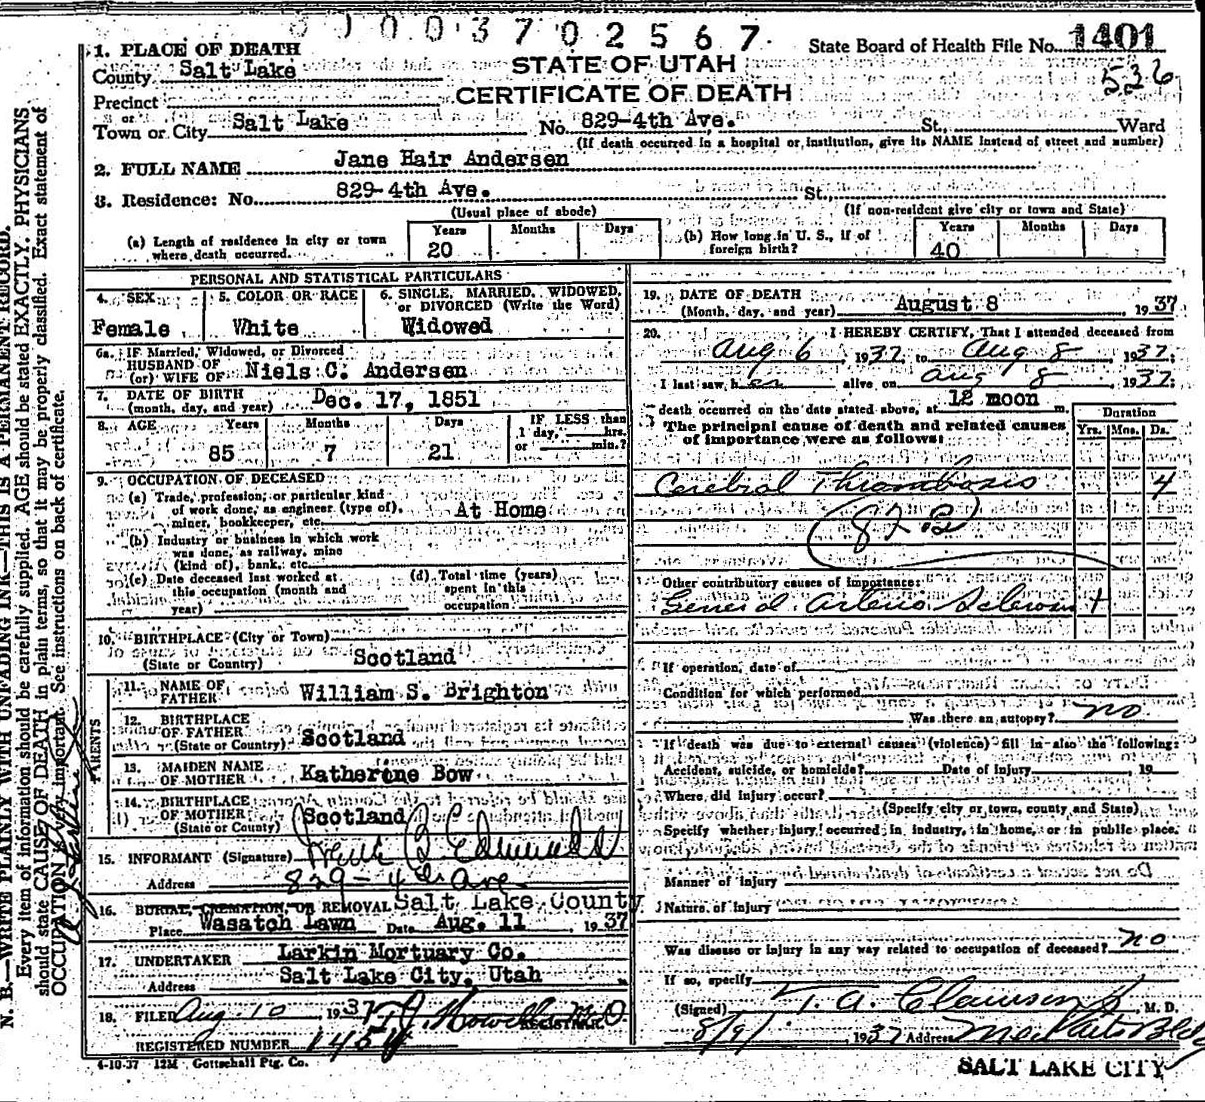 0 0 0 3 7 0 2 5 6 7
State Board of Health File No. 1401
536
STATE OF UTAH
CERTIFICATE OF DEATH
1. PLACE OF DEATH
County Salt Lake
Precinct
or
Town or City Salt Lake No. 829-4th Ave. St., Ward
(If death occurred in a hospital or institution, give its NAME instead of street and number)
2. FULL NAME Jane Hair Andersen
3. Residence: No. 829-4th Ave. St.,
(Usual place of abode) (If non-resident give city or town and State)
(a) Length of residence in city or town where death occurred. Years 20 Months Days
(b) How long in U. S., if of foreign birth? Years 40 Months Days
PERSONAL AND STATISTICAL PARTICULARS
4. SEX Female
5. COLOR OR RACE White
6. SINGLE, MARRIED, WIDOWED, or DIVORCED (Write the Word) Widowed
6a. IF Married, Widowed, or Divorced
HUSBAND OF
(or) WIFE OF Niels C. Andersen
7. DATE OF BIRTH
(month, day, and year) Dec. 17, 1851
8. AGE Years 85 Months 7 Days 21
IF LESS than
1 day, hrs.
or min.?
9. OCCUPATION OF DECEASED
(a) Trade, profession, or particular kind
of work done, as engineer (type of),
miner, bookkeeper, etc. At Home
(b) Industry or business in which work
was done, as railway, mine
(kind of), bank, etc.
(c) Date deceased last worked at
this occupation (month and
year)
(d) Total time (years)
spent in this
occupation
10. BIRTHPLACE (City or Town)
(State or Country) Scotland
PARENTS
11. NAME OF
FATHER William S. Brighton
12. BIRTHPLACE
OF FATHER
(State or Country) Scotland
13. MAIDEN NAME
OF MOTHER Katherine Bow
14. BIRTHPLACE
OF MOTHER
(State or Country) Scotland
15. INFORMANT (Signature)
Address 829-4th Ave
16. BURIAL, CREMATION, OR REMOVAL Salt Lake County
Place Wasatch Lawn Date Aug. 11, 1937
17. UNDERTAKER Larkin Mortuary Co.
Address Salt Lake City, Utah
18. FILED Aug. 10 1937
REGISTRAR
REGISTERED NUMBER
4-10-37 12M Gottschall Ptg. Co.
19. DATE OF DEATH
(Month, day, and year) August 8, 1937
20. I HEREBY CERTIFY, That I attended deceased from
Aug 6, 1937, to Aug 8, 1937;
I last saw her alive on Aug 8, 1937;
death occurred on the date stated above, at 12 noon m.
The principal cause of death and related causes
of importance were as follows:
Duration
Yrs. Mos. Ds.
Cerebral Thrombosis 4
Other contributory causes of importance:
General Arterio Sclerosis +
If operation, date of
Condition for which performed
Was there an autopsy? no
If death was due to external causes (violence) fill in also the following:
Accident, suicide, or homicide? Date of injury, 19
Where did injury occur?
(Specify city or town, county and State)
Specify whether injury occurred in industry, in home, or in public place.
Manner of injury
Nature of injury
Was disease or injury in any way related to occupation of deceased? no
If so, specify
(Signed) T. A. Clawson Jr M. D.
8/9/ 1937 Address
SALT LAKE CITY
N. B.—WRITE PLAINLY WITH UNFADING INK—THIS IS A PERMANENT RECORD.
Every item of information should be carefully supplied. AGE should be stated EXACTLY. PHYSICIANS
should state CAUSE OF DEATH in plain terms, so that it may be properly classified. Exact statement of
OCCUPATION is very important. See instructions on back of certificate.